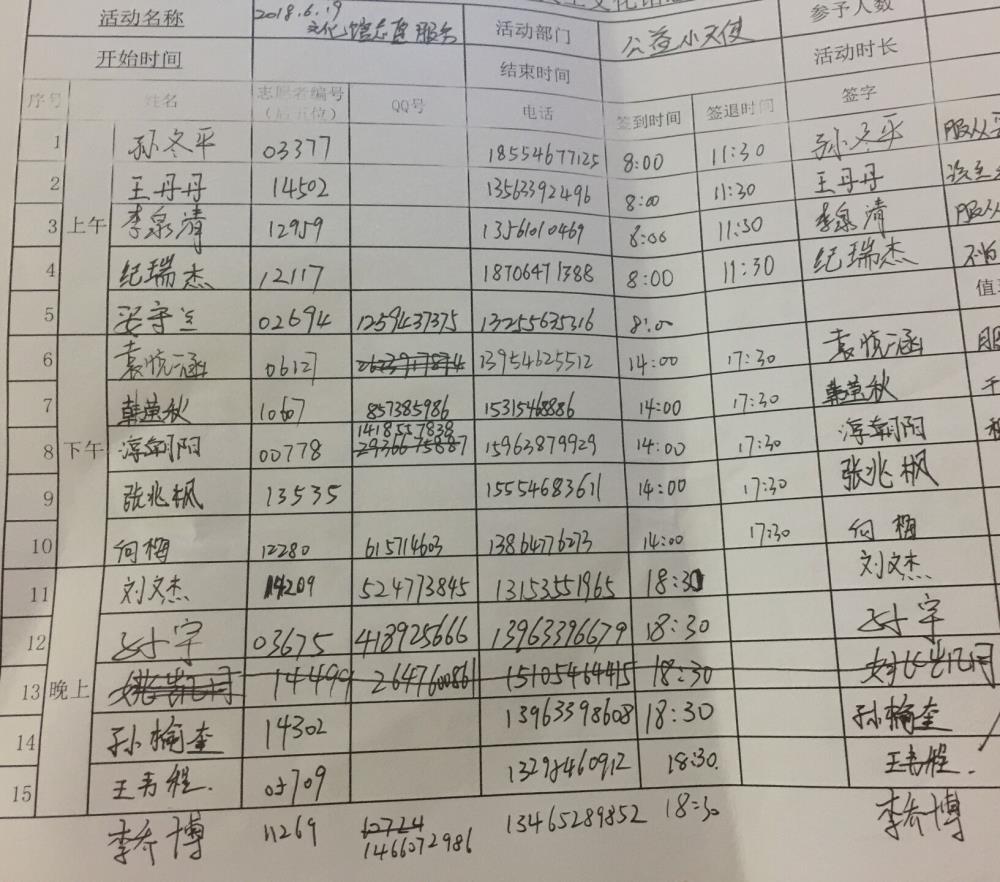 活动名称 2018.6.19 文化馆志愿服务 活动部门 公益小天使 参予人数
开始时间 结束时间 活动时长
序号 姓名 志愿者编号（后五位） QQ号 电话 签到时间 签退时间 签字
1 孙冬平 03377 18554677125 8:00 11:30 孙冬平 服从
2 王丹丹 14502 13563392496 8:00 11:30 王丹丹
3 上午 李泉清 12959 13561010469 8:00 11:30 李泉清 服从
4 纪瑞杰 12117 18706471388 8:00 11:30 纪瑞杰 不怕
5 02694 1259437375 13255635316 8:00 值
6 袁悦涵 06127 13954625512 14:00 17:30 袁悦涵
7 韩莹秋 10607 857385986 15315468886 14:00 17:30 韩莹秋
8 下午 淳朝阳 00778 1418557838 2936675887 15963879929 14:00 17:30 淳朝阳
9 张兆枫 13535 15554683611 14:00 17:30 张兆枫
10 何梅 12280 615714603 13864776273 14:00 17:30 何梅
11 刘文杰 14209 524773845 13153551965 18:30 刘文杰
12 宇 03675 418925666 13963396679 18:30 宇
13 晚上 14499 264760861 15105464415 18:30
14 孙榆奎 14302 13963398608 18:30 孙榆奎
15 王韦程. 05709 13295460912 18:30. 王韦程.
李乔博 11269 60724 1466072986 13465289852 18:30 李乔博